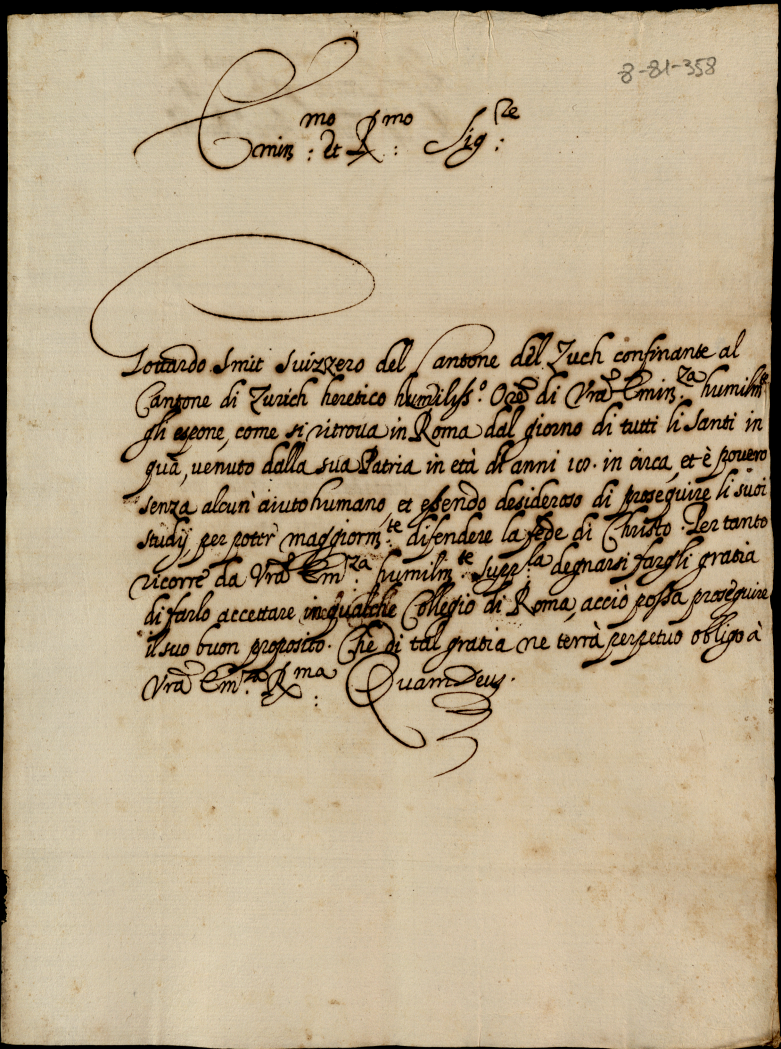 8-81-358
Emin:mo et R:mo Sig:re
Jottardo Smit Suizzero del Cantone del Zuch confinante al
Cantone di Zurich heretico humiliss.o Ore di Vra Emin.za humilm.te
gli espone, come si ritroua in Roma dal giorno di tutti li Santi in
quà, venuto dalla sua Patria in età di anni in circa, et è pouero
senza alcun aiuto humano, et essendo desideroso di proseguire li suoi
studij, per poter maggiorm.te difendere la fede di Christo. Per tanto
ricorre da Vra Em.za humilm.te supp.la degnarsi fargli gratia
di farlo accettare in qualche Collegio di Roma, acciò possa proseguire
il suo buon proposito. Che di tal gratia ne terrà perpetuo obligo à
Vra Em.za R:ma Quam Deus.